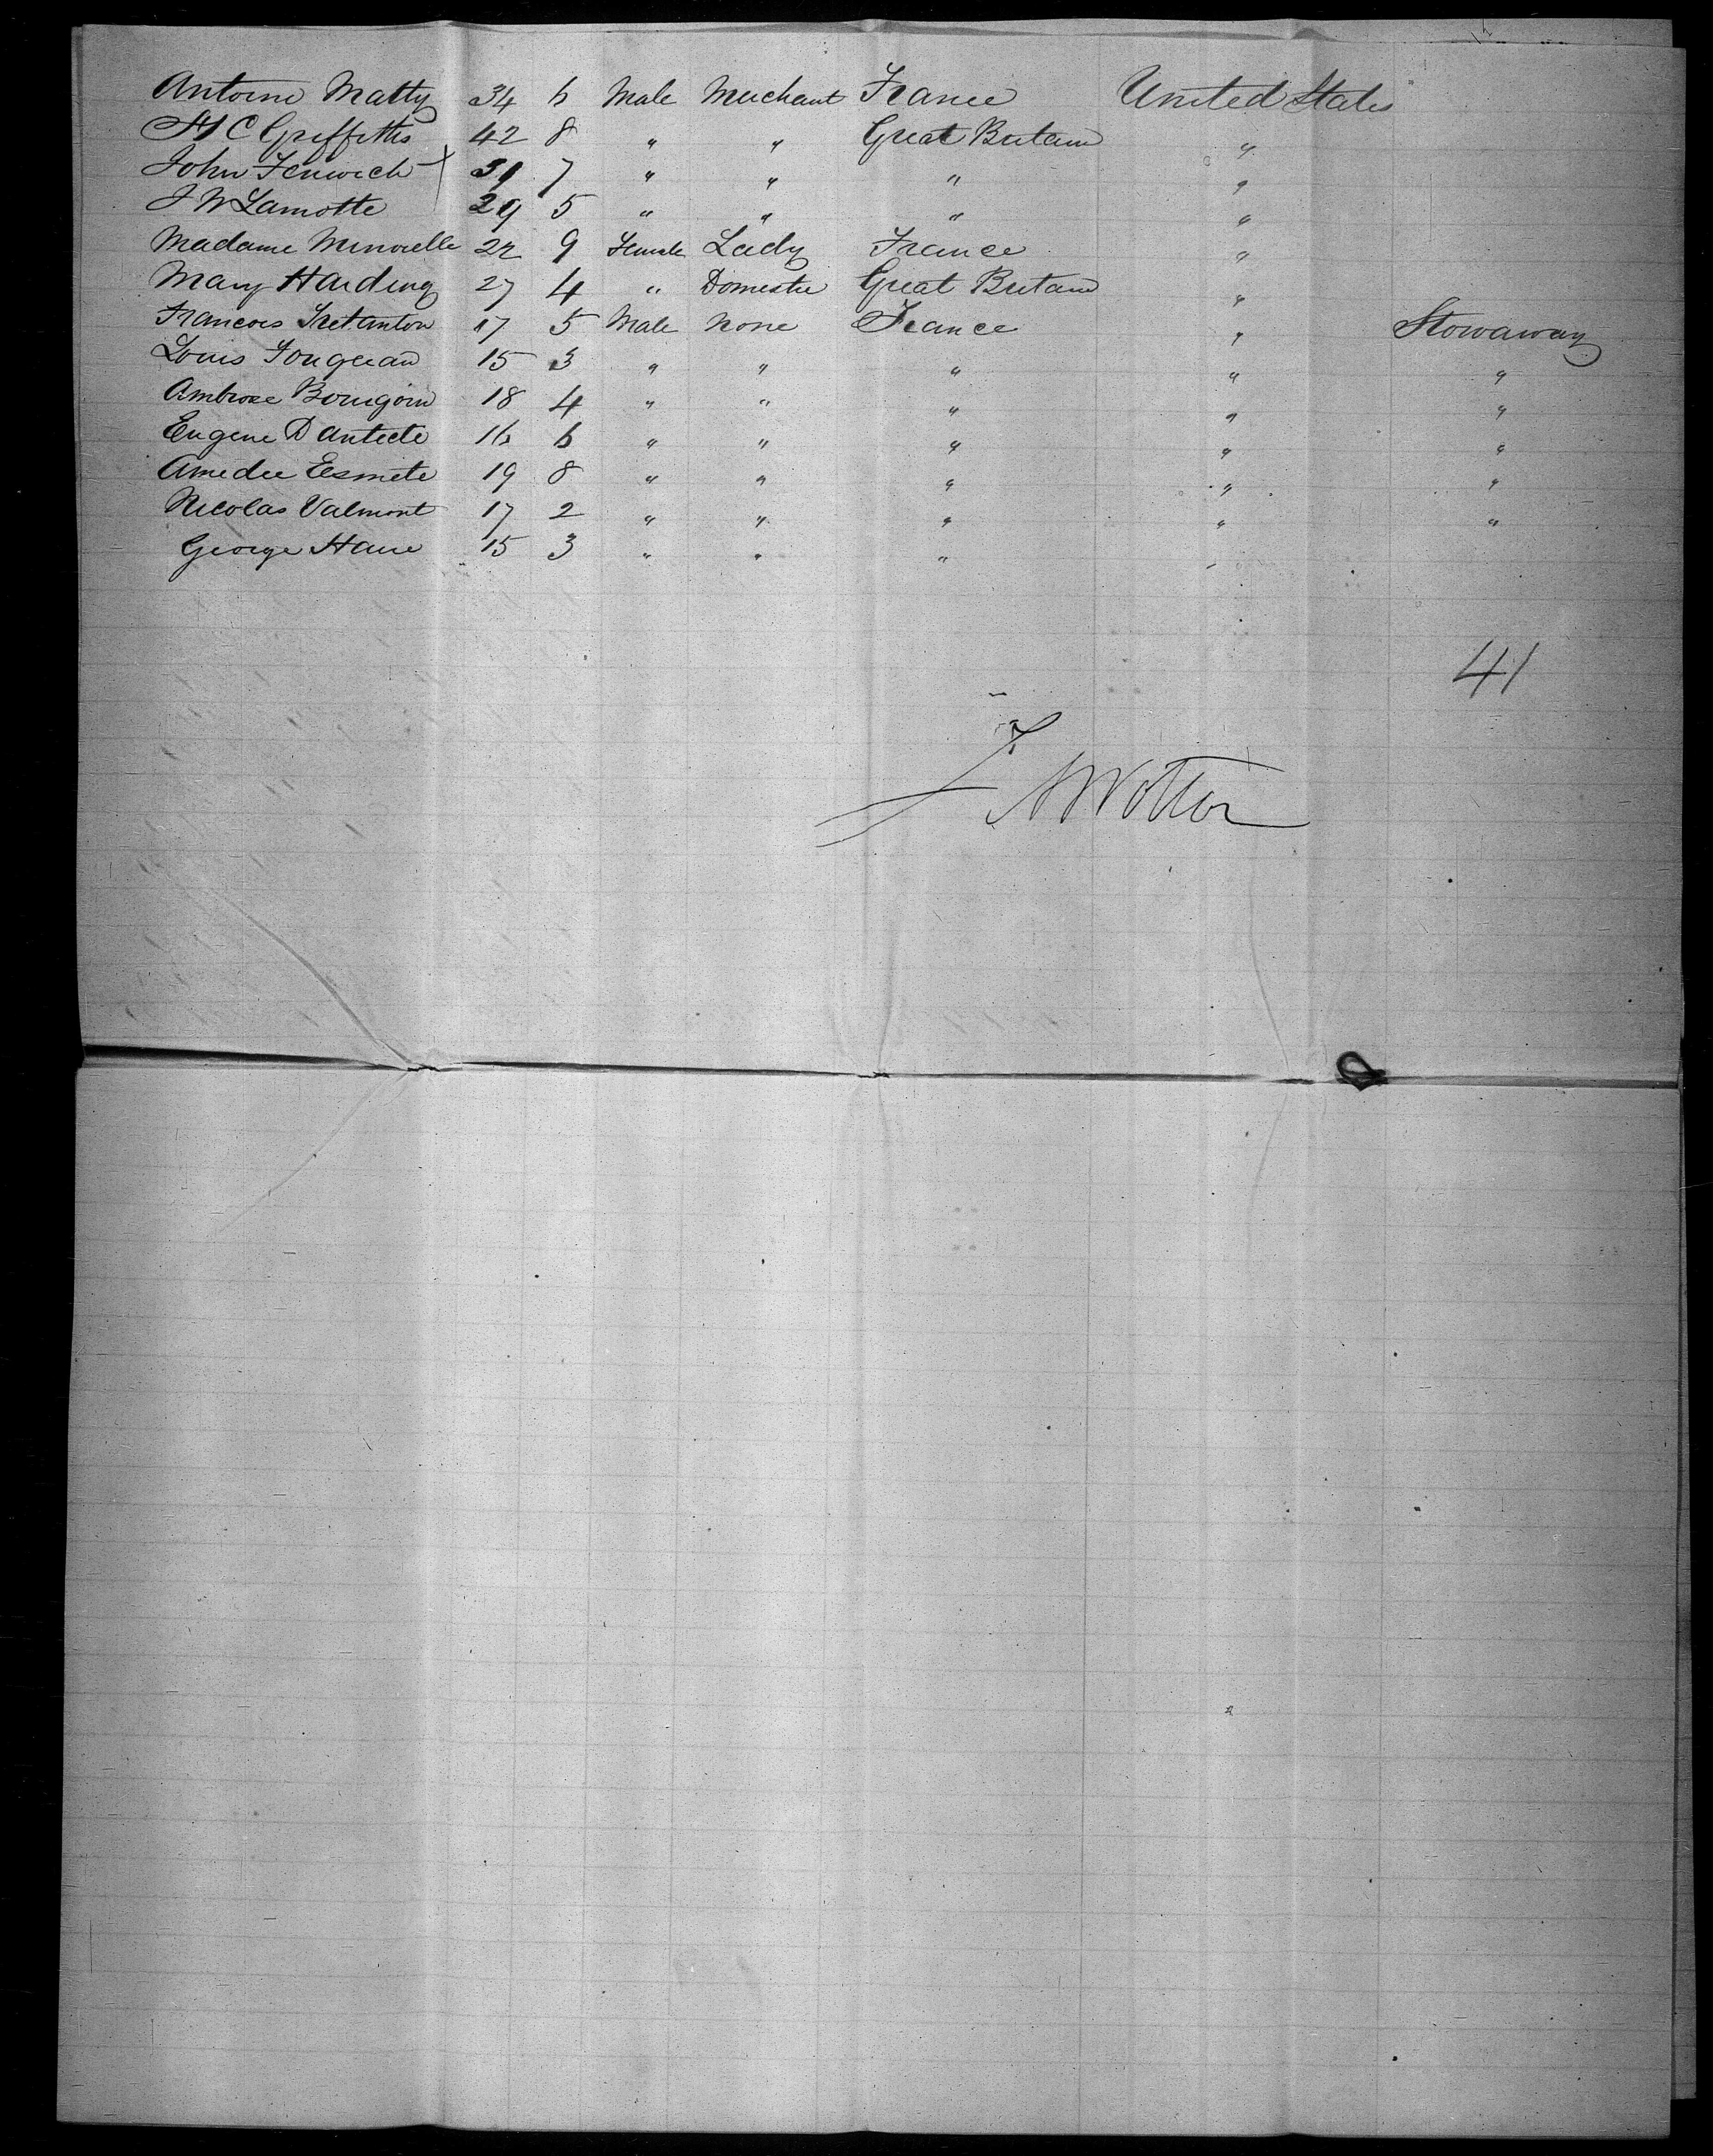 Antoine Matty 34 6 Male Merchant France United States
H C Griffiths 42 8 " " Great Britain "
John Fenwick 39 7 " " " "
J W Lamotte 29 5 " " " "
Madame Minorelle 22 9 Female Lady France "
Mary Harding 27 4 " Domestic Great Britain "
Francois 17 5 Male None France " Stowaway
Louis Fouqueau 15 3 " " " " "
Ambrose Bourgoin 18 4 " " " " "
Eugene D 16 6 " " " " "
Amedee Esmete 19 8 " " " " "
Nicolas Valmont 17 2 " " " " "
George 15 3 " " " "
41
J A Wotton